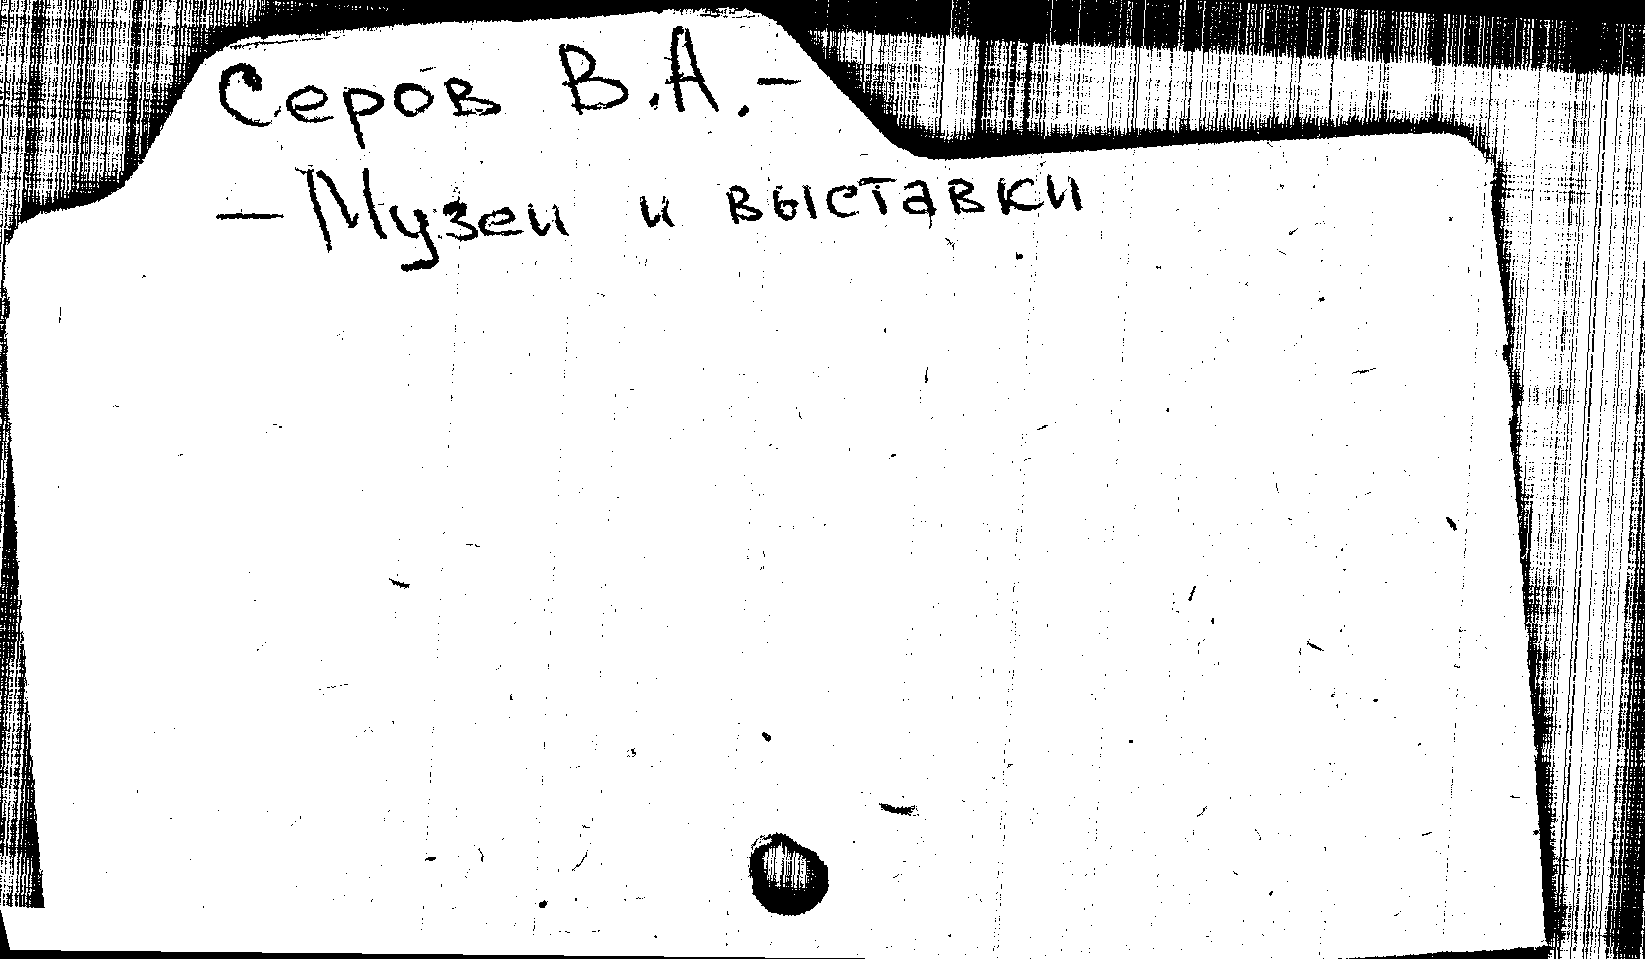 Серов В.А.-
- Музеи и выставки